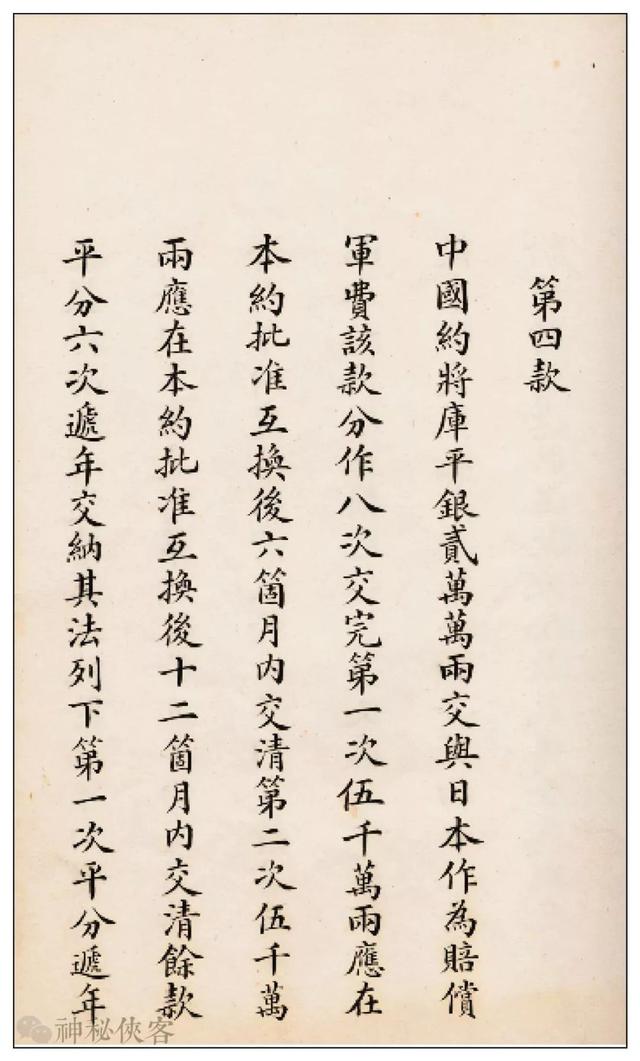 第四款
中國約將庫平銀貳萬萬兩交與日本作為賠償
軍費該款分作八次交完第一次伍千萬兩應在
本約批准互換後六箇月內交清第二次伍千萬
兩應在本約批准互換後十二箇月內交清餘款
平分六次遞年交納其法列下第一次平分遞年
神秘俠客